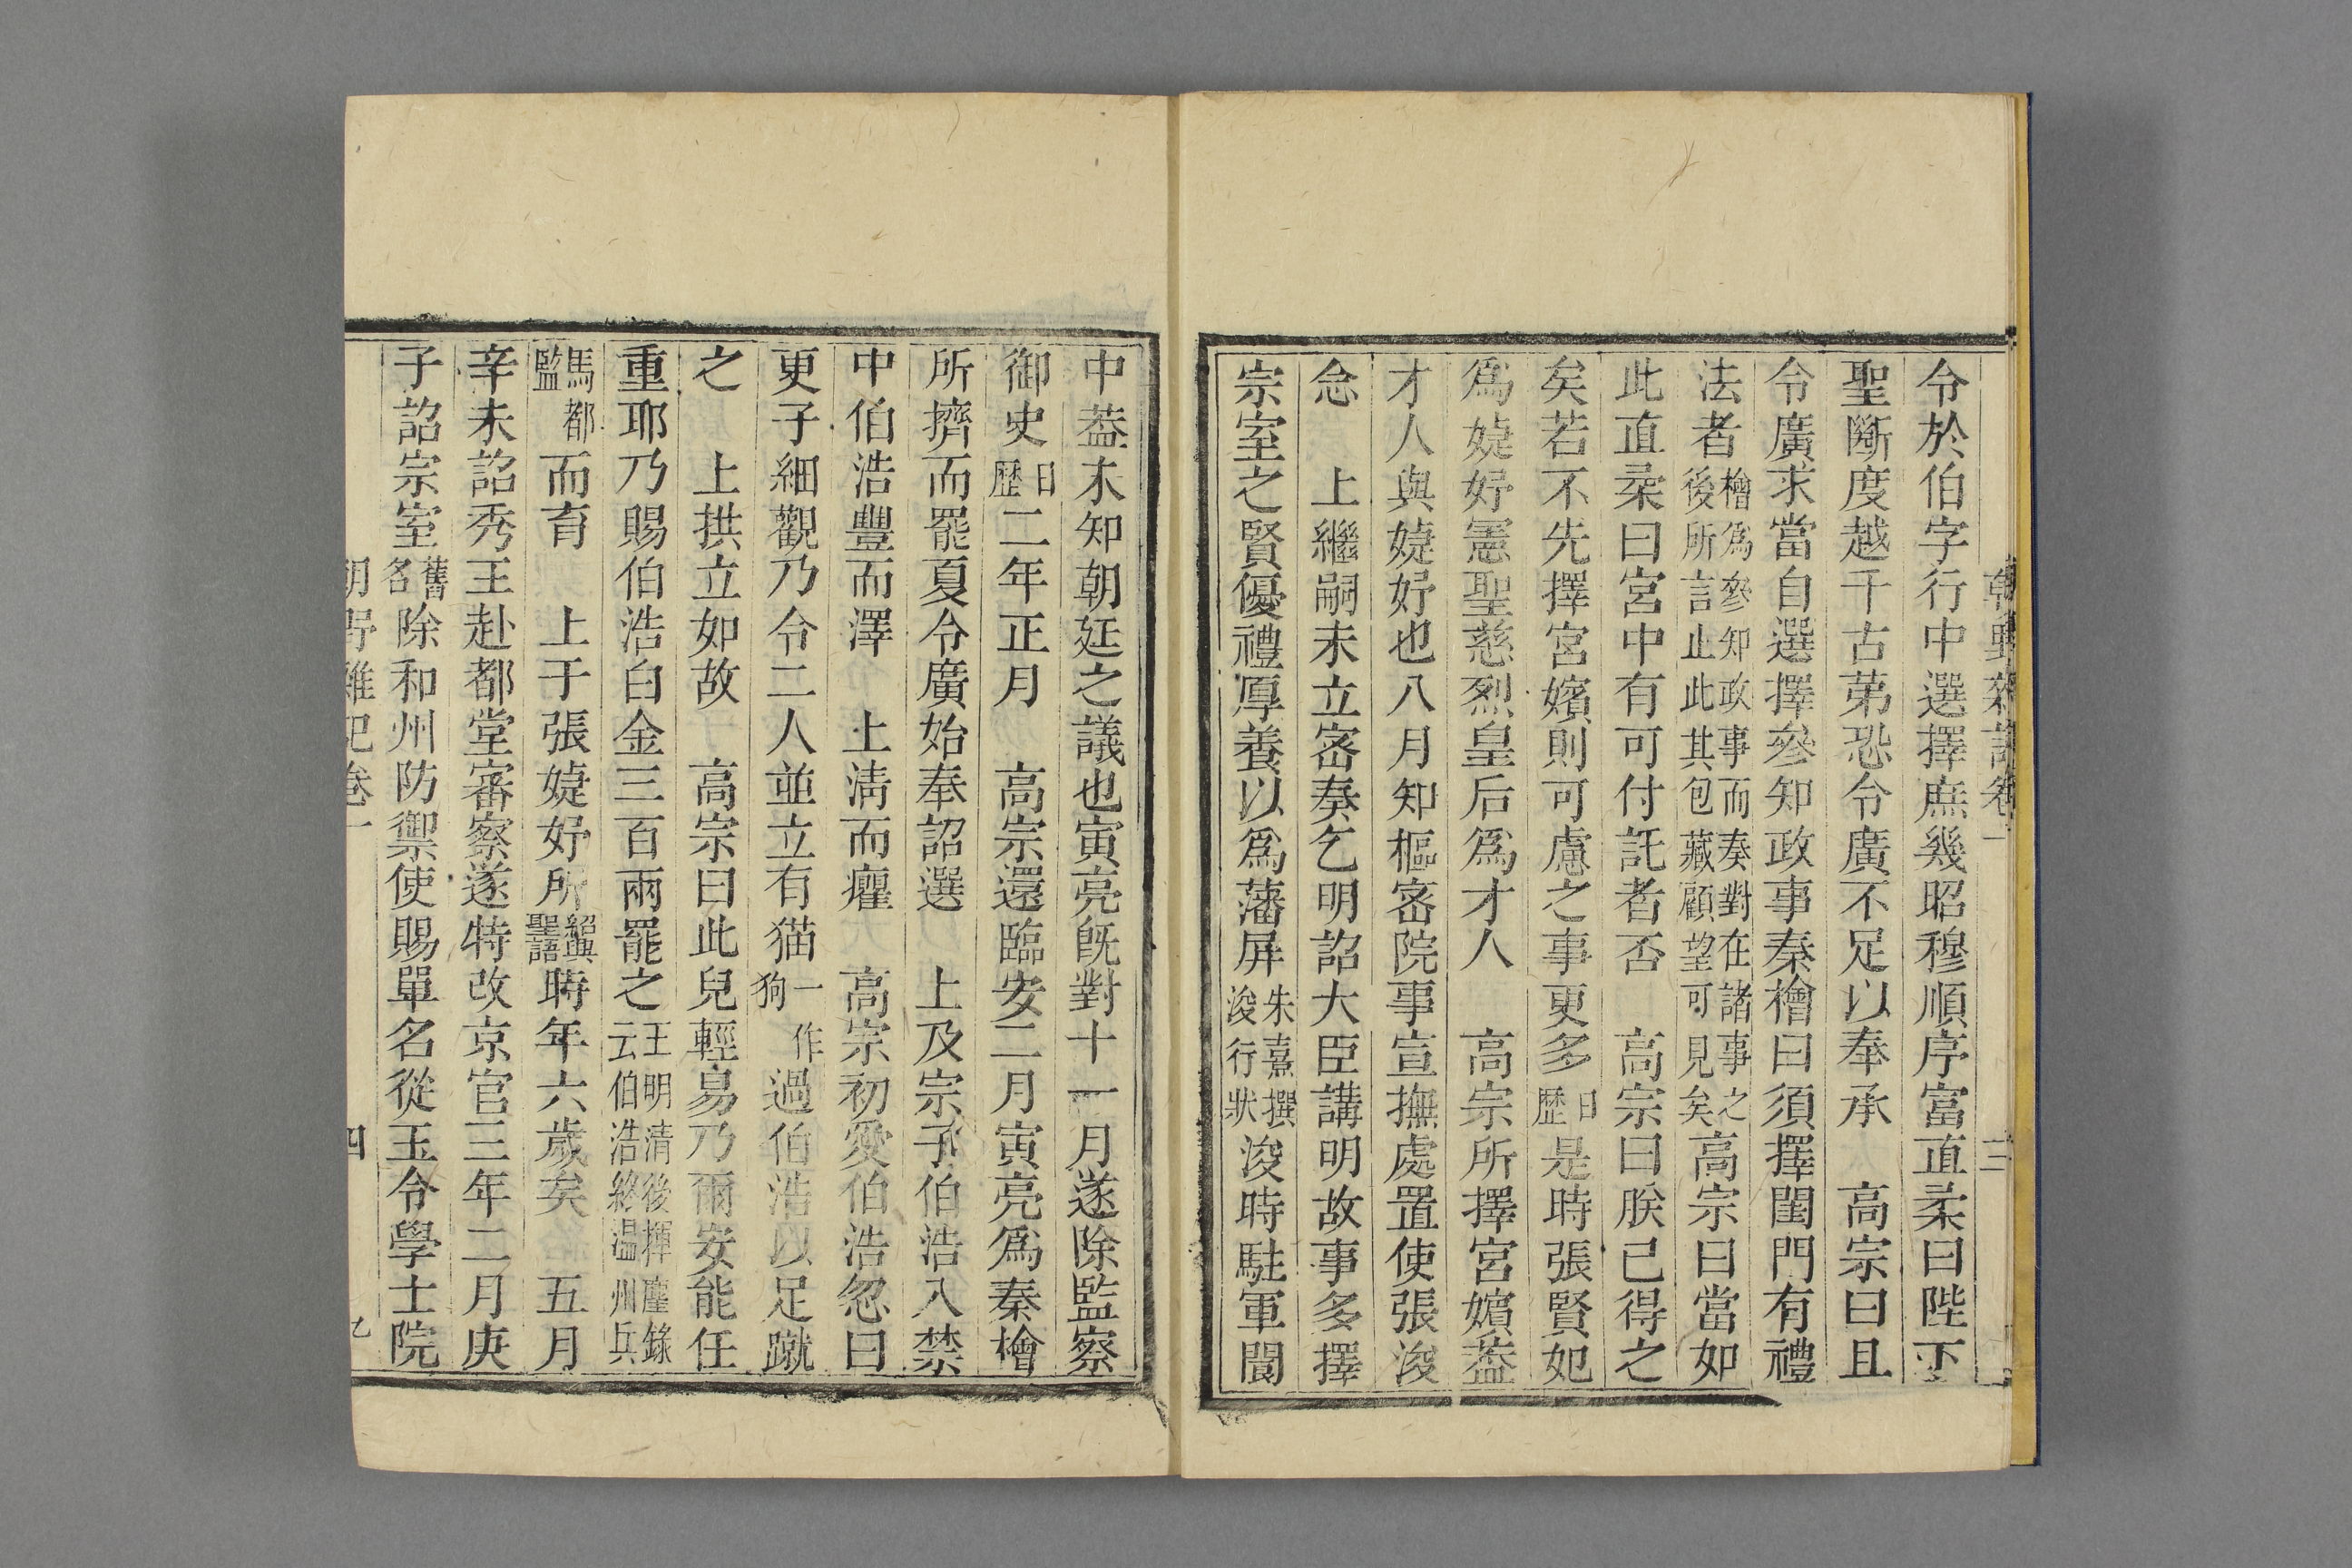 朝野雜記卷一 三
令於伯字行中選擇庶幾昭穆順序富直柔曰陛下
聖斷度越千古第恐令廣不足以奉承　高宗曰且
令廣求當自選擇參知政事秦檜曰須擇閨門有禮
法者檜爲參知政事而奏對在諸事之後所言止此其包藏顧望可見矣高宗曰當如
此直柔曰宮中有可付託者否　高宗曰朕已得之
矣若不先擇宮嬪則可慮之事更多日歷是時張賢妃
爲婕妤憲聖慈烈皇后爲才人　高宗所擇宮嬪葢
才人與婕妤也八月知樞密院事宣撫處置使張浚
念　上繼嗣未立密奏乞明詔大臣講明故事多擇
宗室之賢優禮厚養以爲藩屏朱熹撰浚行狀浚時駐軍閬
中葢未知朝廷之議也寅亮旣對十一月遂除監察
御史日歷二年正月　高宗還臨安二月寅亮爲秦檜
所擠而罷夏令廣始奉詔選　上及宗子伯浩入禁
中伯浩豐而澤　上淸而癯　高宗初愛伯浩忽曰
更子細觀乃令二人並立有猫一作狗過伯浩以足蹴
之　上拱立如故　高宗曰此兒輕易乃爾安能任
重耶乃賜伯浩白金三百兩罷之王明清後揮麈錄云伯浩終温州兵
馬都監而育　上于張婕妤所紹興聖語時年六歲矣　五月
辛未詔秀王赴都堂審察遂特改京官三年二月庚
子詔宗室舊名除和州防禦使賜單名從玉令學士院
朝野雜記卷一 四